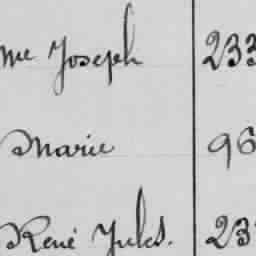 me Joseph 233
Marie 96
René Jules. 23